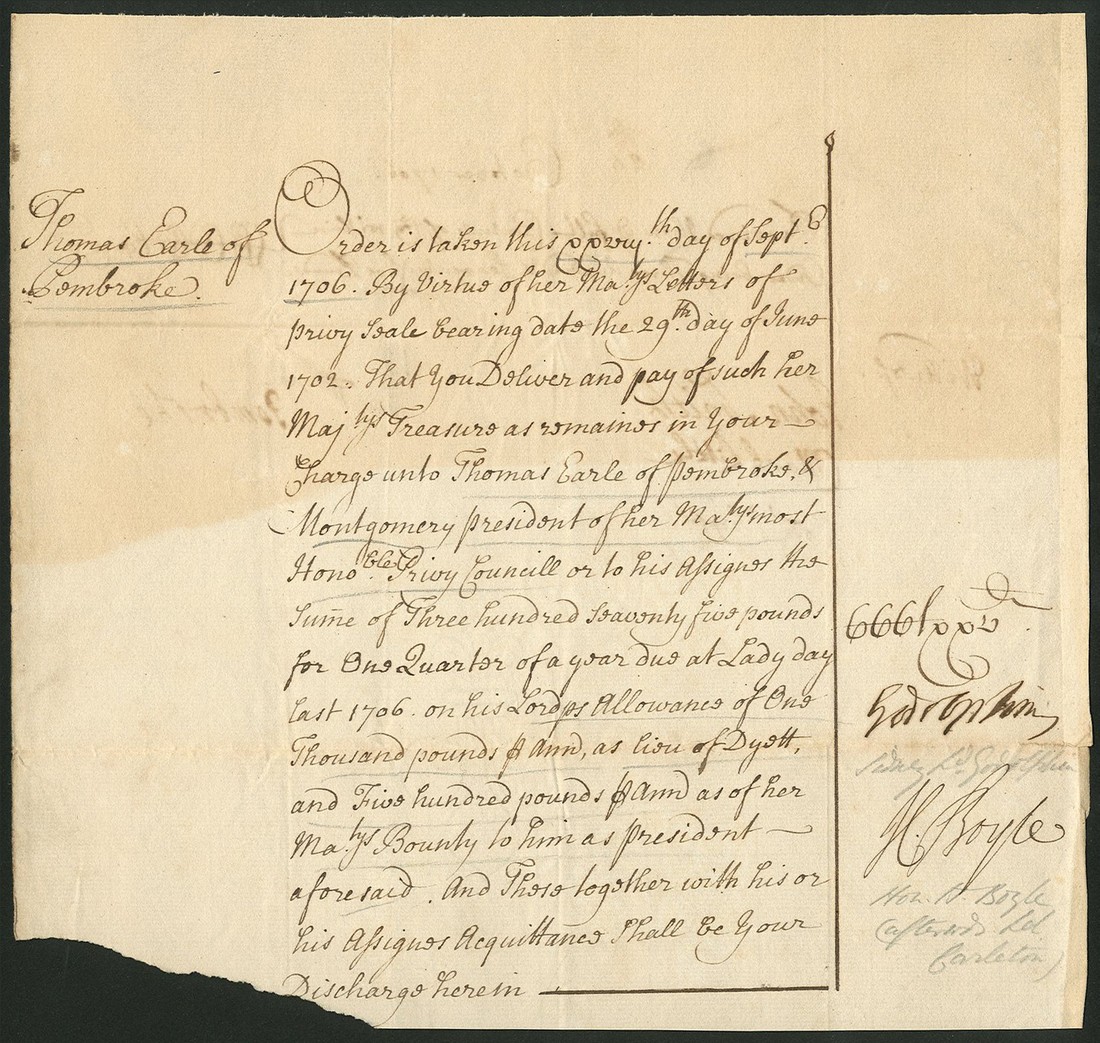 Thomas Earle of
Pembroke.
Order is taken this xxviij.th day of Sept.b
1706. By Virtue of her Ma.tys Letters of
privy Seale bearing date the 29.th day of June
1702. That You Deliver and pay of such her
Maj.tys Treasure as remaines in Your
Charge unto Thomas Earle of Pembroke, &
Montgomery president of her Ma.tys most
Hono.ble Privy Councill or to his Assignes the
Sum̄e of Three hundred seaventy five pounds
for One Quarter of a year due at Lady day
last 1706. on his Lordps Allowance of One
Thousand pounds ꝑ Ann, as lieu of Dyett,
and Five hundred pounds ꝑ Ann as of her
Ma.tys Bounty to him as president
aforesaid. And These together with his or
his Assignes Acquittance Shall be Your
Discharge herein
Godolphin
Sidney Ld. Godolphin
H. Boyle
Hon. H. Boyle
(afterwds Ld
Carleton)